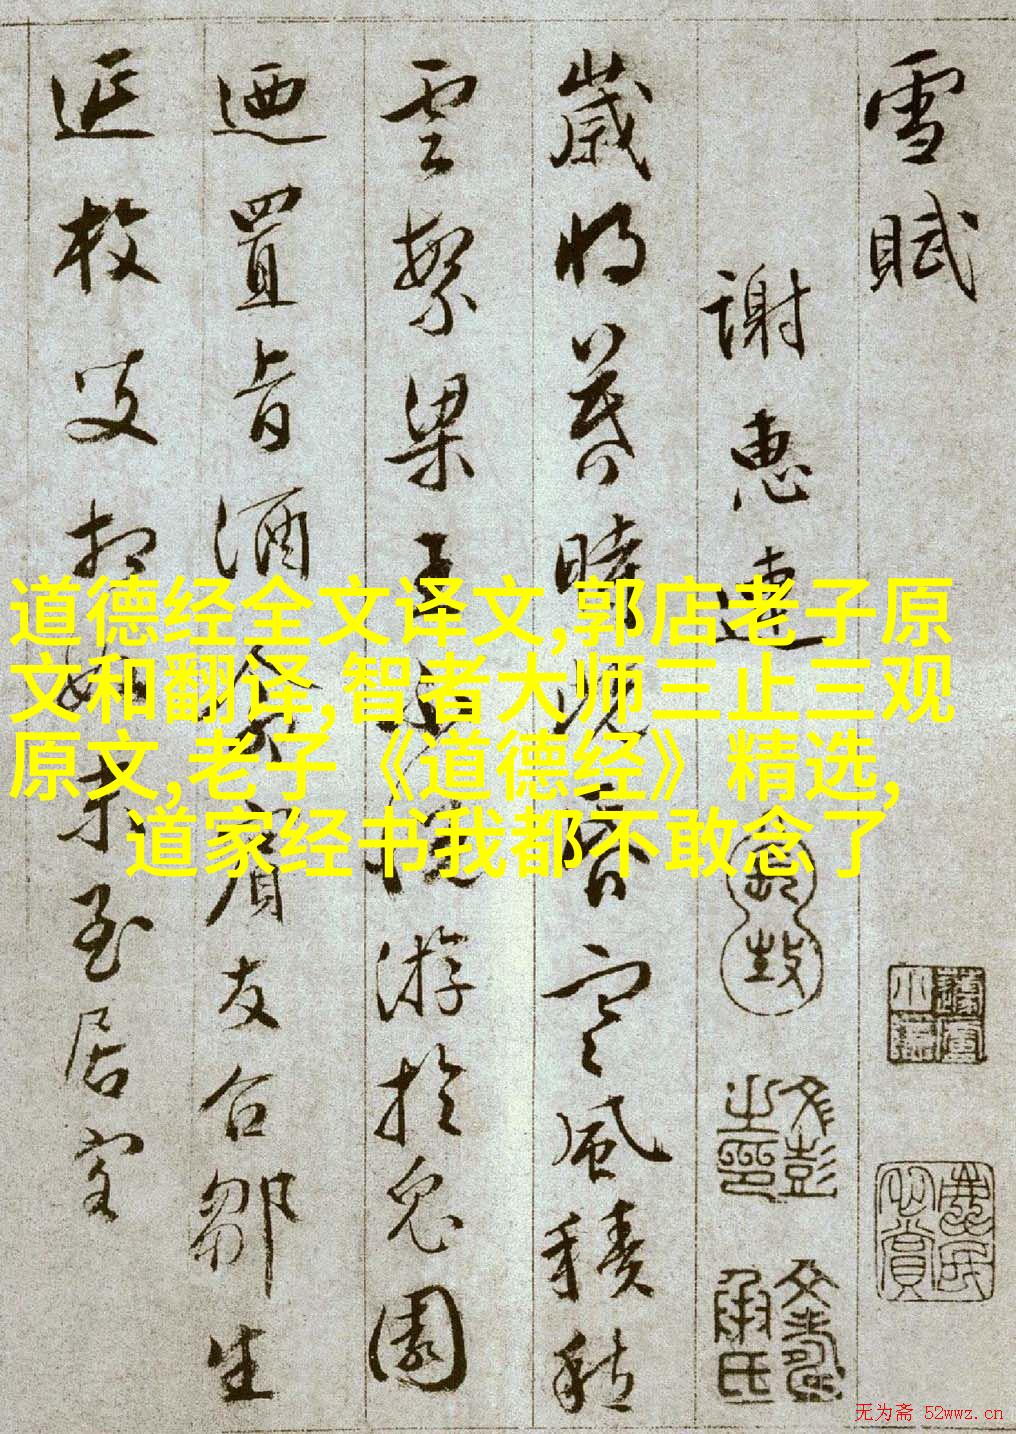 雪賦
謝惠連
歲将暮時既昏寒風積愁
雲繁梁王不悅游於兔園
迺置旨酒命賓友召鄒生
延枚叟相如末至居客
道德经全文译文,郭店老子原
文和翻译,智者大师三止三观
原文,老子《道德经》精选,
道家经书我都不敢念了
文彭之印
文壽承氏
无为斋 52wwz.cn